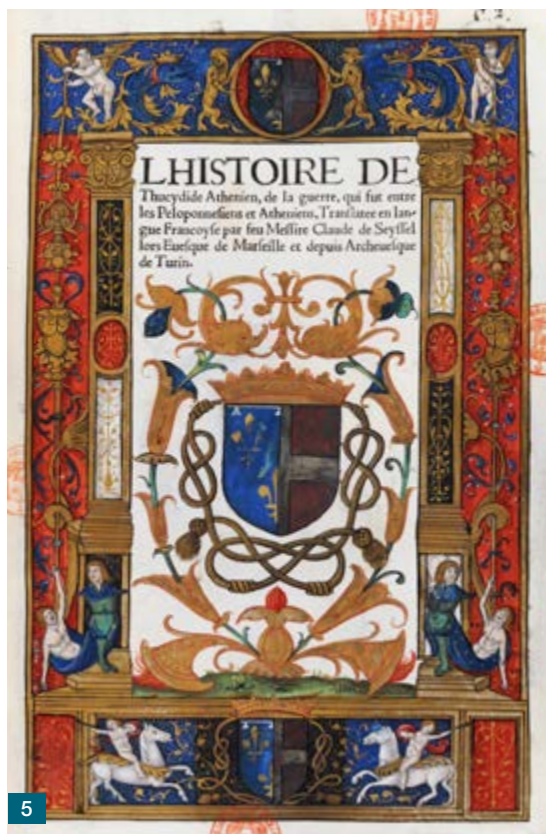 LHISTOIRE DE
Thucydide Athenien, de la guerre, qui fut entre
les Peloponnesiens et Atheniens, Translatee en lan-
gue Francoyse par feu Messire Claude de Seyssel
lors Euesque de Marseille et depuis Archeuesque
de Turin.
5